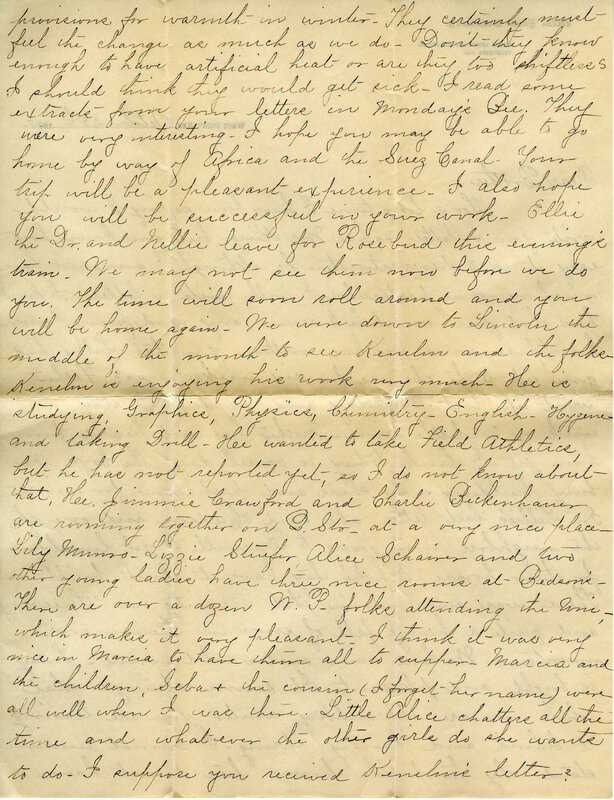 provisions for warmth in winter - They certainly must
feel the change as much as we do - Don't they know
enough to have artificial heat or are they too shiftless
I should think they would get sick - I read some
extracts from your letters in Monday's Bee. They
were very interesting - I hope you may be able to go
home by way of Africa and the Suez Canal - Your
trip will be a pleasant experience - I also hope
you will be successful in your work - Ellie
the Dr. and Nellie leave for Rosebud this evening's
train - We may not see them now before we do
you. The time will soon roll around and you
will be home again - We were down to Lincoln the
middle of the month to see Kenelm and the folks -
Kenelm is enjoying his work very much - Hee is
studying, Graphics, Physics, Chemistry - English - Hygene
and taking Drill - Hee wanted to take Field Athletics,
but he has not reported yet, so I do not know about
that, Hee, Jimmie Crawford and Charlie Beckenhauer
are rooming together on Q. Str - at a very nice place -
Lily Munro - Lizzie Stuefer Alice Schairer and two
other young ladies have three nice rooms at Bedson's -
There are over a dozen W. P. folks attending the Uni,
which makes it very pleasant - I think it was very
nice in Marcia to have them all to supper - Marcia and
the children, Seba + the cousin (I forget her name) were
all well when I was there. Little Alice chatters all the
time and what-ever the other girls do she wants
to do - I suppose you recieved Kenelm's letter?